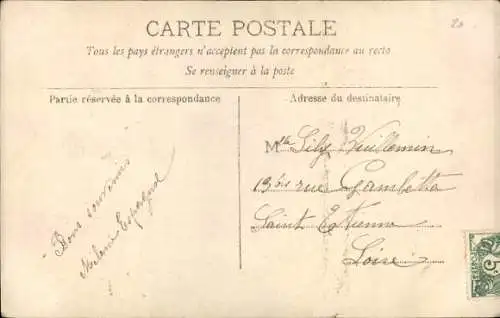 CARTE POSTALE
20
Tous les pays étrangers n'acceptent pas la correspondance au recto
Se renseigner à la poste
Partie réservée à la correspondance
Adresse du destinataire
Bons souvenirs
Melanie Espagne
Mlle Lily Vuillemin
13bis rue Gambetta
Saint Etienne
Loire
5